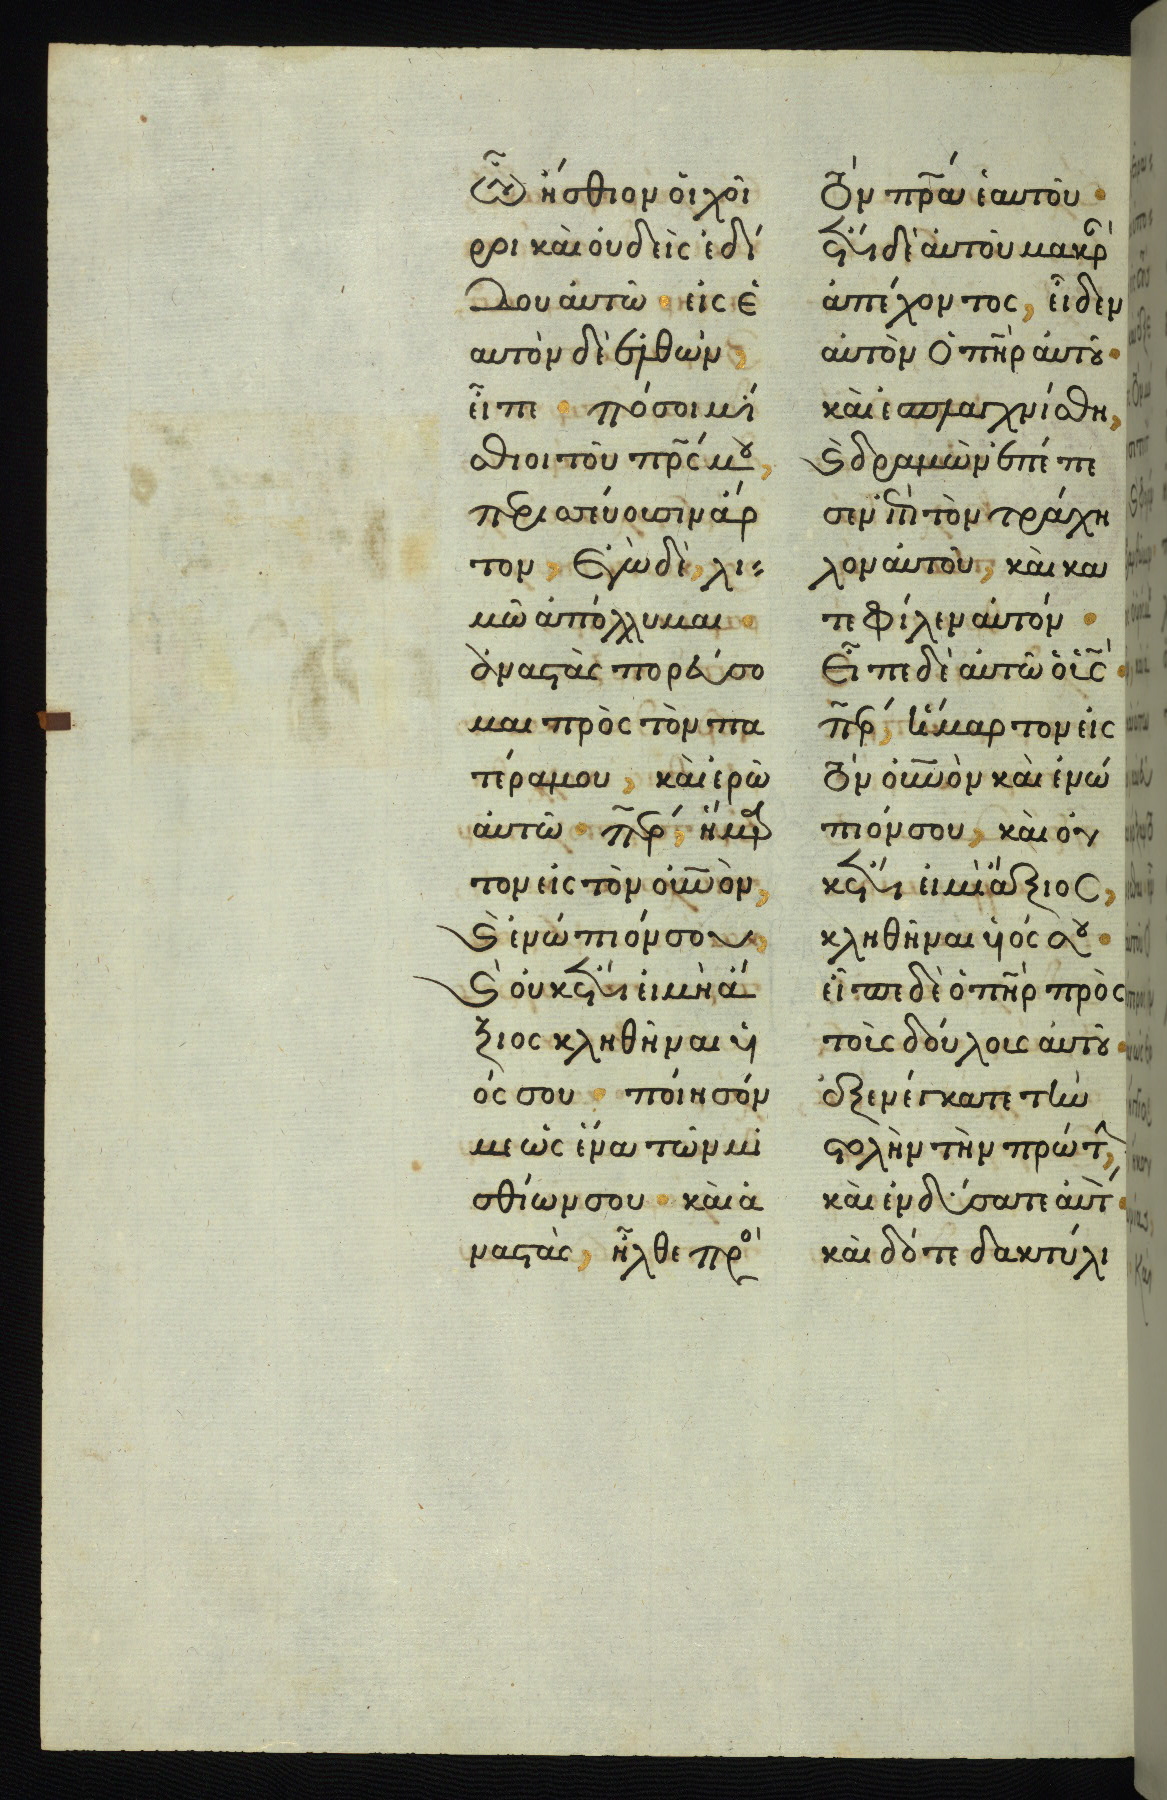 ὧν ἤσθιον οἱ χοῖ
ροι καὶ οὐδεὶς ἐδί
δου αὐτῶ · εἰς ἑ
αυτὸν δὲ ἐλθὼν,
εἶπε · πόσοι μί
σθιοι τοῦ πρς μου,
περισσεύουσιν ἄρ
τον, ἐγὼ δὲ, λι
μῶ ἀπόλλυμαι ·
ἀναστὰς πορεύσο
μαι πρὸς τὸν πα
τέρα μου, καὶ ἐρῶ
αὐτῶ · περ, ἥμαρ
τον εἰς τὸν οὐνὸν,
καὶ ἐνώπιόν σου,
καὶ οὐκέτι εἰμὴ ἄ
ξιος κληθῆναι υἱ
ός σου · ποίησόν
με ὡς ἕνα τῶν μι
σθίων σου · καὶ ἀ
ναστὰς, ἦλθε προς
τὸν πρα ἑαυτοῦ ·
ἔτι δὲ αὐτοῦ μακρὰν
ἀπέχοντος, εἶδεν
αὐτὸν ὁ πηρ αὐτοῦ ·
καὶ ἐσπλαγχνίσθη,
καὶ δραμὼν ἐπέπε
σεν ἐπὶ τὸν τράχη
λον αὐτοῦ, καὶ κα
τεφίλεν αὐτόν ·
Εἶπε δὲ αὐτῶ ὁ υἱς ·
περ, ἥμαρτον εἰς
τὸν οὐνὸν καὶ ἐνώ
πιόν σου, καὶ οὐ
κέτι εἰμὶ ἄξιος,
κληθῆναι υἱός σου ·
εἶπε δὲ ὁ πηρ πρὸς
τοὶς δούλοις αὐτοῦ ·
ἐξενέγκατε τὴν
στολὴν τὴν πρώτην,
καὶ ἐνδύσατε αὐτον ·
καὶ δότε δακτύλι